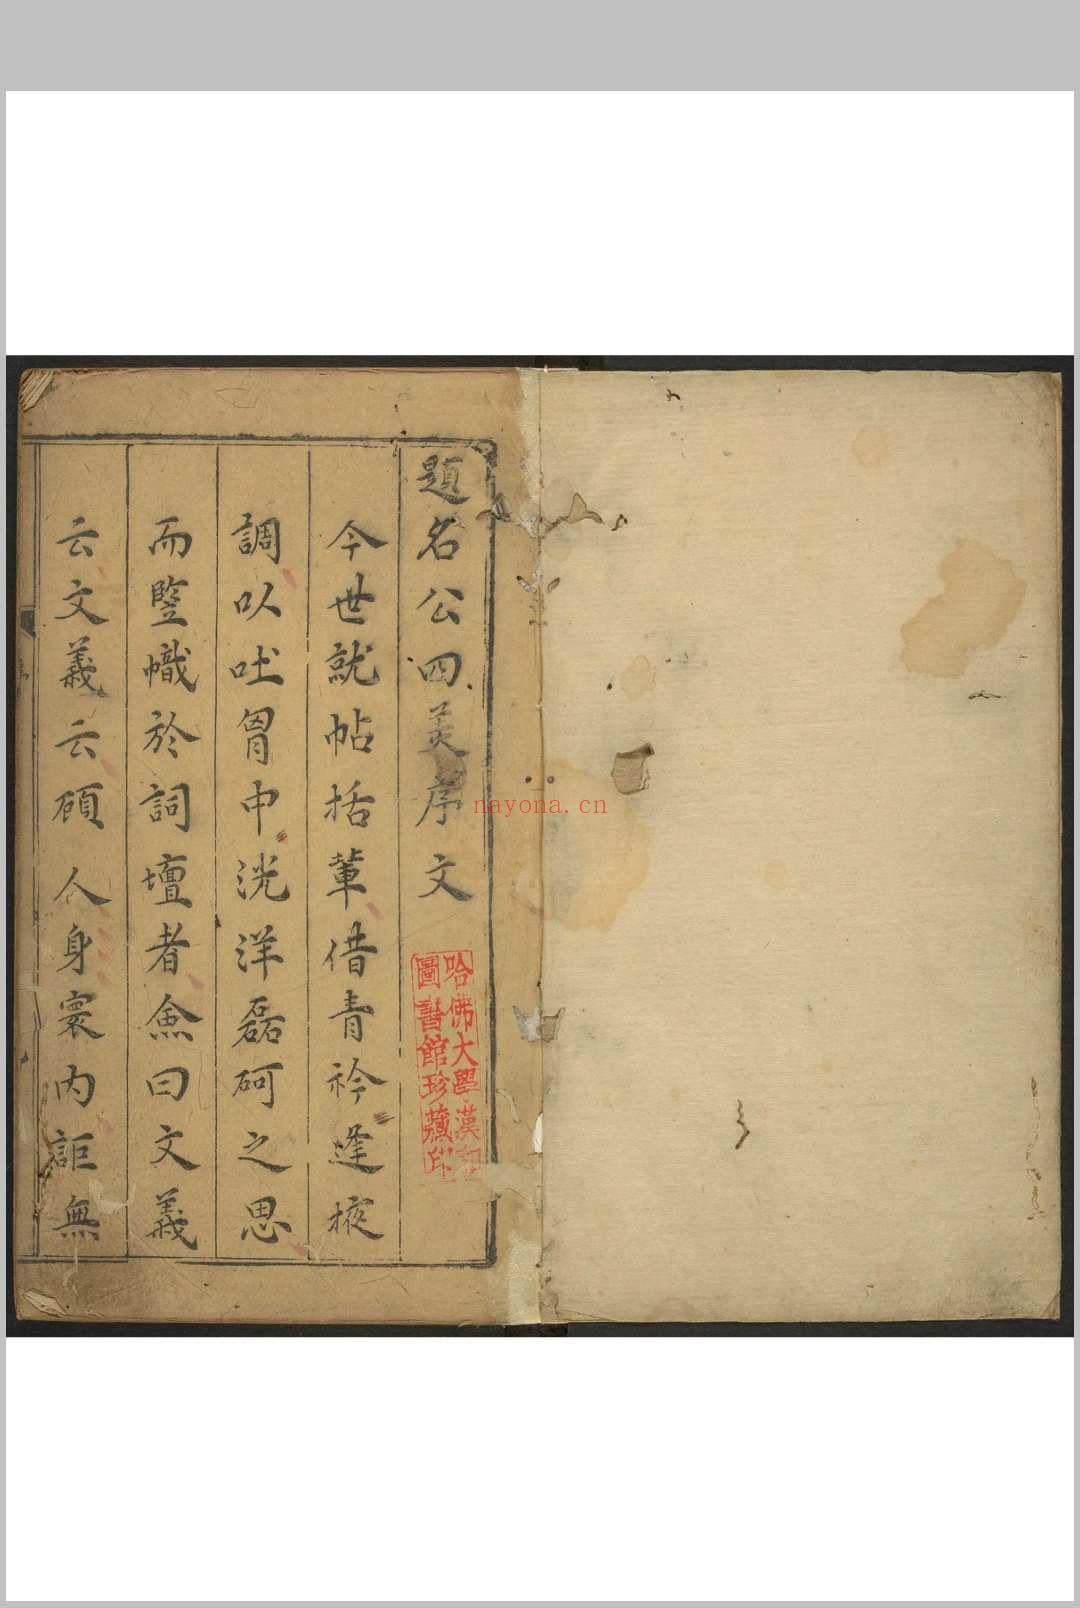 題名公四美序文
今世就帖括輩借青衿逢掖
調以吐胷中洸洋磊砢之思
而豎幟於詞壇者僉曰文義
云文義云顧人身寰內詎無
哈佛大學漢和
圖書館珍藏印
nayona.cn